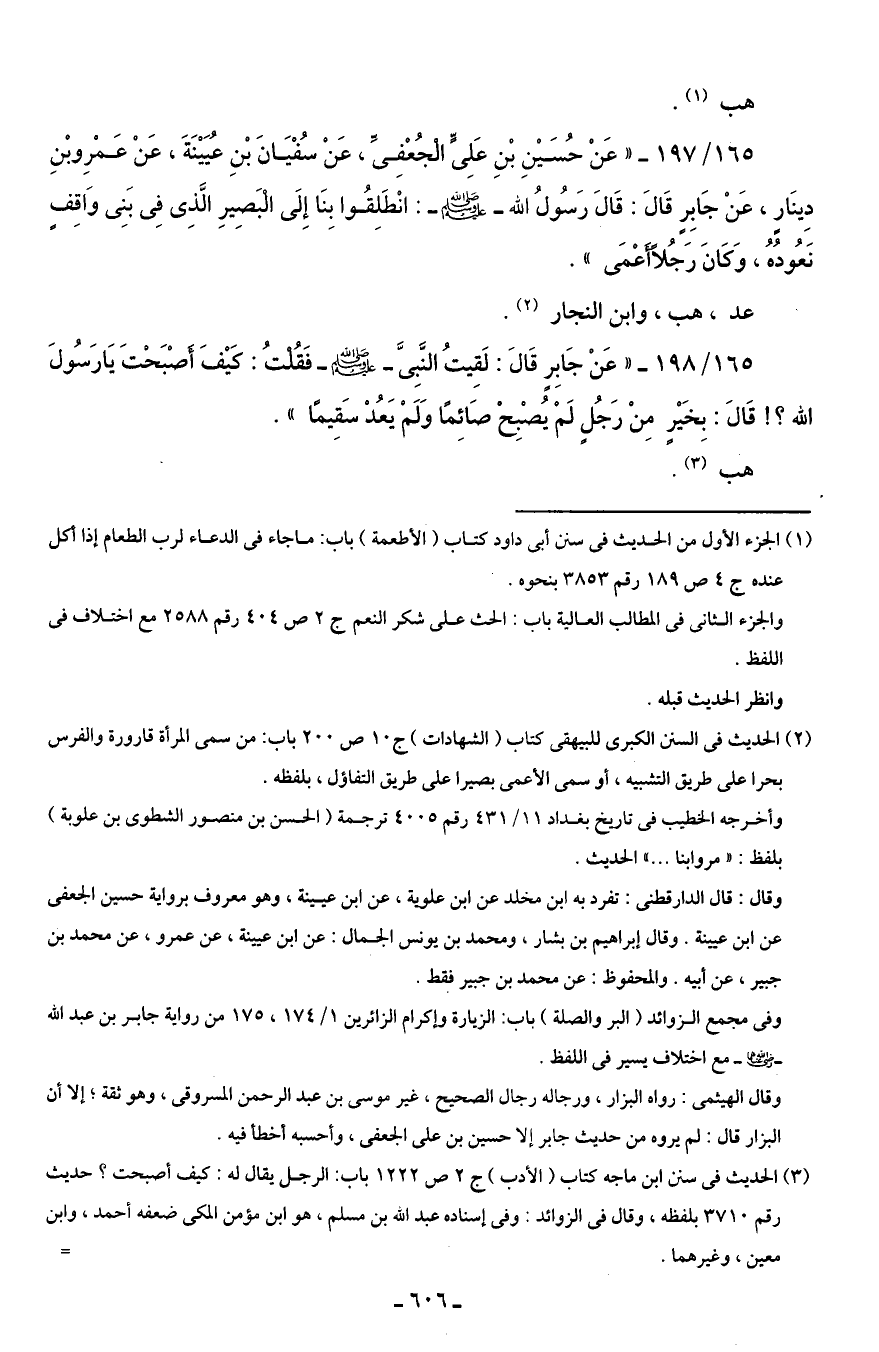 هب (١) .
١٦٥/ ١٩٧ ـ « عَنْ حُسَيْنِ بْنِ عَلِيٍّ الْجُعْفِيِّ ، عَنْ سُفْيَانَ بْنِ عُيَيْنَةَ ، عَنْ عَمْرِوبْنِ
دِينَارٍ ، عَنْ جَابِرٍ قَالَ : قَالَ رَسُولُ الله ـ ﷺ ـ : انْطَلِقُوا بِنَا إِلَى الْبَصِيرِ الَّذِى فِى بَنِى وَاقِفٍ
نَعُودُهُ ، وَكَانَ رَجُلاً أَعْمَى » .
عد ، هب ، وابن النجار (٢) .
١٦٥/ ١٩٨ ـ « عَنْ جَابِرٍ قَالَ : لَقِيتُ النَّبِىَّ ـ ﷺ ـ فَقُلْتُ : كَيْفَ أَصْبَحْتَ يَارَسُولَ
الله ؟! قَالَ : بِخَيْرٍ مِنْ رَجُلٍ لَمْ يُصْبِحْ صَائِمًا وَلَمْ يَعُدْ سَقِيمًا » .
هب (٣) .
(١) الجزء الأول من الحديث فى سنن أبى داود كتاب ( الأطعمة ) باب: ماجاء فى الدعاء لرب الطعام إذا أكل
عنده ج ٤ ص ١٨٩ رقم ٣٨٥٣ بنحوه .
والجزء الثانى فى المطالب العالية باب : الحث على شكر النعم ج ٢ ص ٤٠٤ رقم ٢٥٨٨ مع اختلاف فى
اللفظ .
وانظر الحديث قبله .
(٢) الحديث فى السنن الكبرى للبيهقى كتاب ( الشهادات ) ج١٠ ص ٢٠٠ باب: من سمى المرأة قارورة والفرس
بحرا على طريق التشبيه ، أو سمى الأعمى بصيرا على طريق التفاؤل ، بلفظه .
وأخرجه الخطيب فى تاريخ بغداد ١١/ ٤٣١ رقم ٤٠٠٥ ترجمة ( الحسن بن منصور الشطوى بن علوية )
بلفظ : « مروابنا ...» الحديث .
وقال : قال الدارقطنى : تفرد به ابن مخلد عن ابن علوية ، عن ابن عيينة ، وهو معروف برواية حسين الجعفى
عن ابن عيينة . وقال إبراهيم بن بشار ، ومحمد بن يونس الجمال : عن ابن عيينة ، عن عمرو ، عن محمد بن
جبير ، عن أبيه . والمحفوظ : عن محمد بن جبير فقط .
وفى مجمع الزوائد ( البر والصلة ) باب: الزيارة وإكرام الزائرين ١/ ١٧٤ ، ١٧٥ من رواية جابر بن عبد الله
ـ رضي الله عنه ـ مع اختلاف يسير فى اللفظ .
وقال الهيثمى : رواه البزار ، ورجاله رجال الصحيح ، غير موسى بن عبد الرحمن المسروقى ، وهو ثقة ؛ إلا أن
البزار قال : لم يروه من حديث جابر إلا حسين بن على الجعفى ، وأحسبه أخطأ فيه .
(٣) الحديث فى سنن ابن ماجه كتاب ( الأدب ) ج ٢ ص ١٢٢٢ باب: الرجل يقال له : كيف أصبحت ؟ حديث
رقم ٣٧١٠ بلفظه ، وقال فى الزوائد : وفى إسناده عبد الله بن مسلم ، هو ابن مؤمن المكى ضعفه أحمد ، وابن
معين ، وغيرهما . =
ـ ٦٠٦ ـ